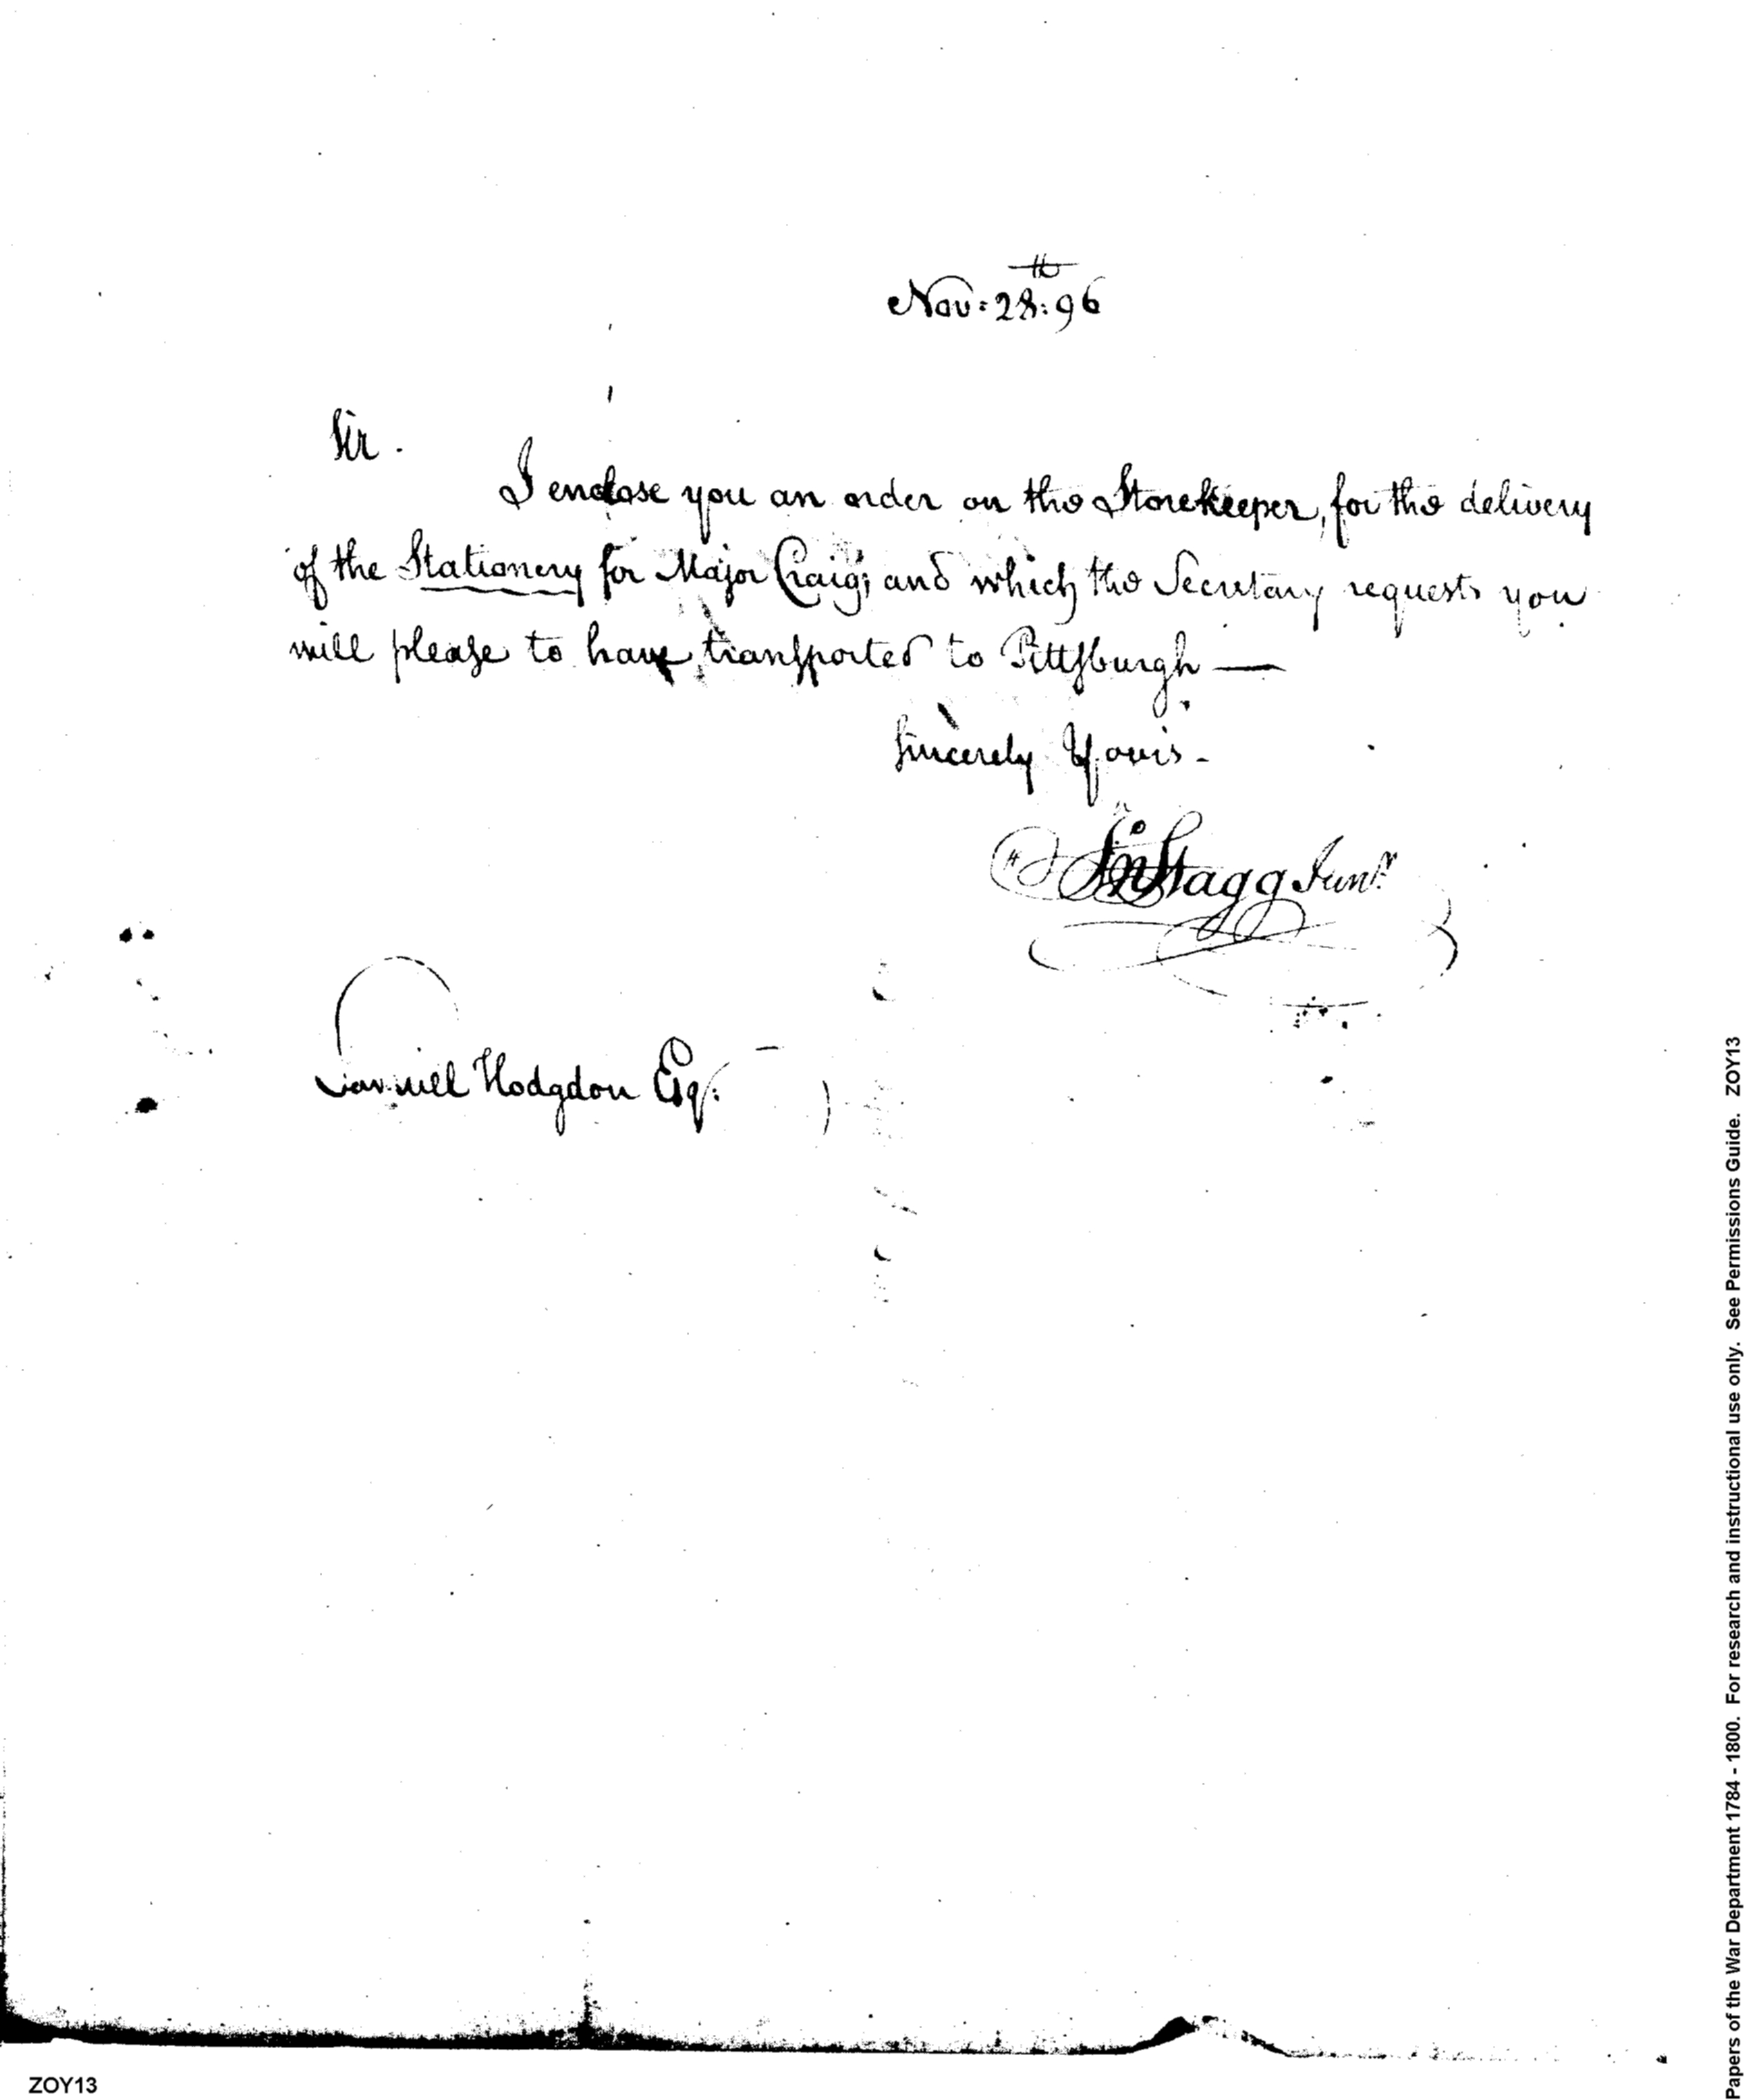 Nov: 28th: 96
Sir.
I enclose you an order on the Storekeeper, for the delivery
of the Stationery for Major Craig; and which the Secretary requests you
will please to have transported to Pittsburgh —
Sincerely Yours -
Jno Stagg Junr.
Samuel Hodgdon Esq:
Papers of the War Department 1784 - 1800. For research and instructional use only. See Permissions Guide. ZOY13
ZOY13